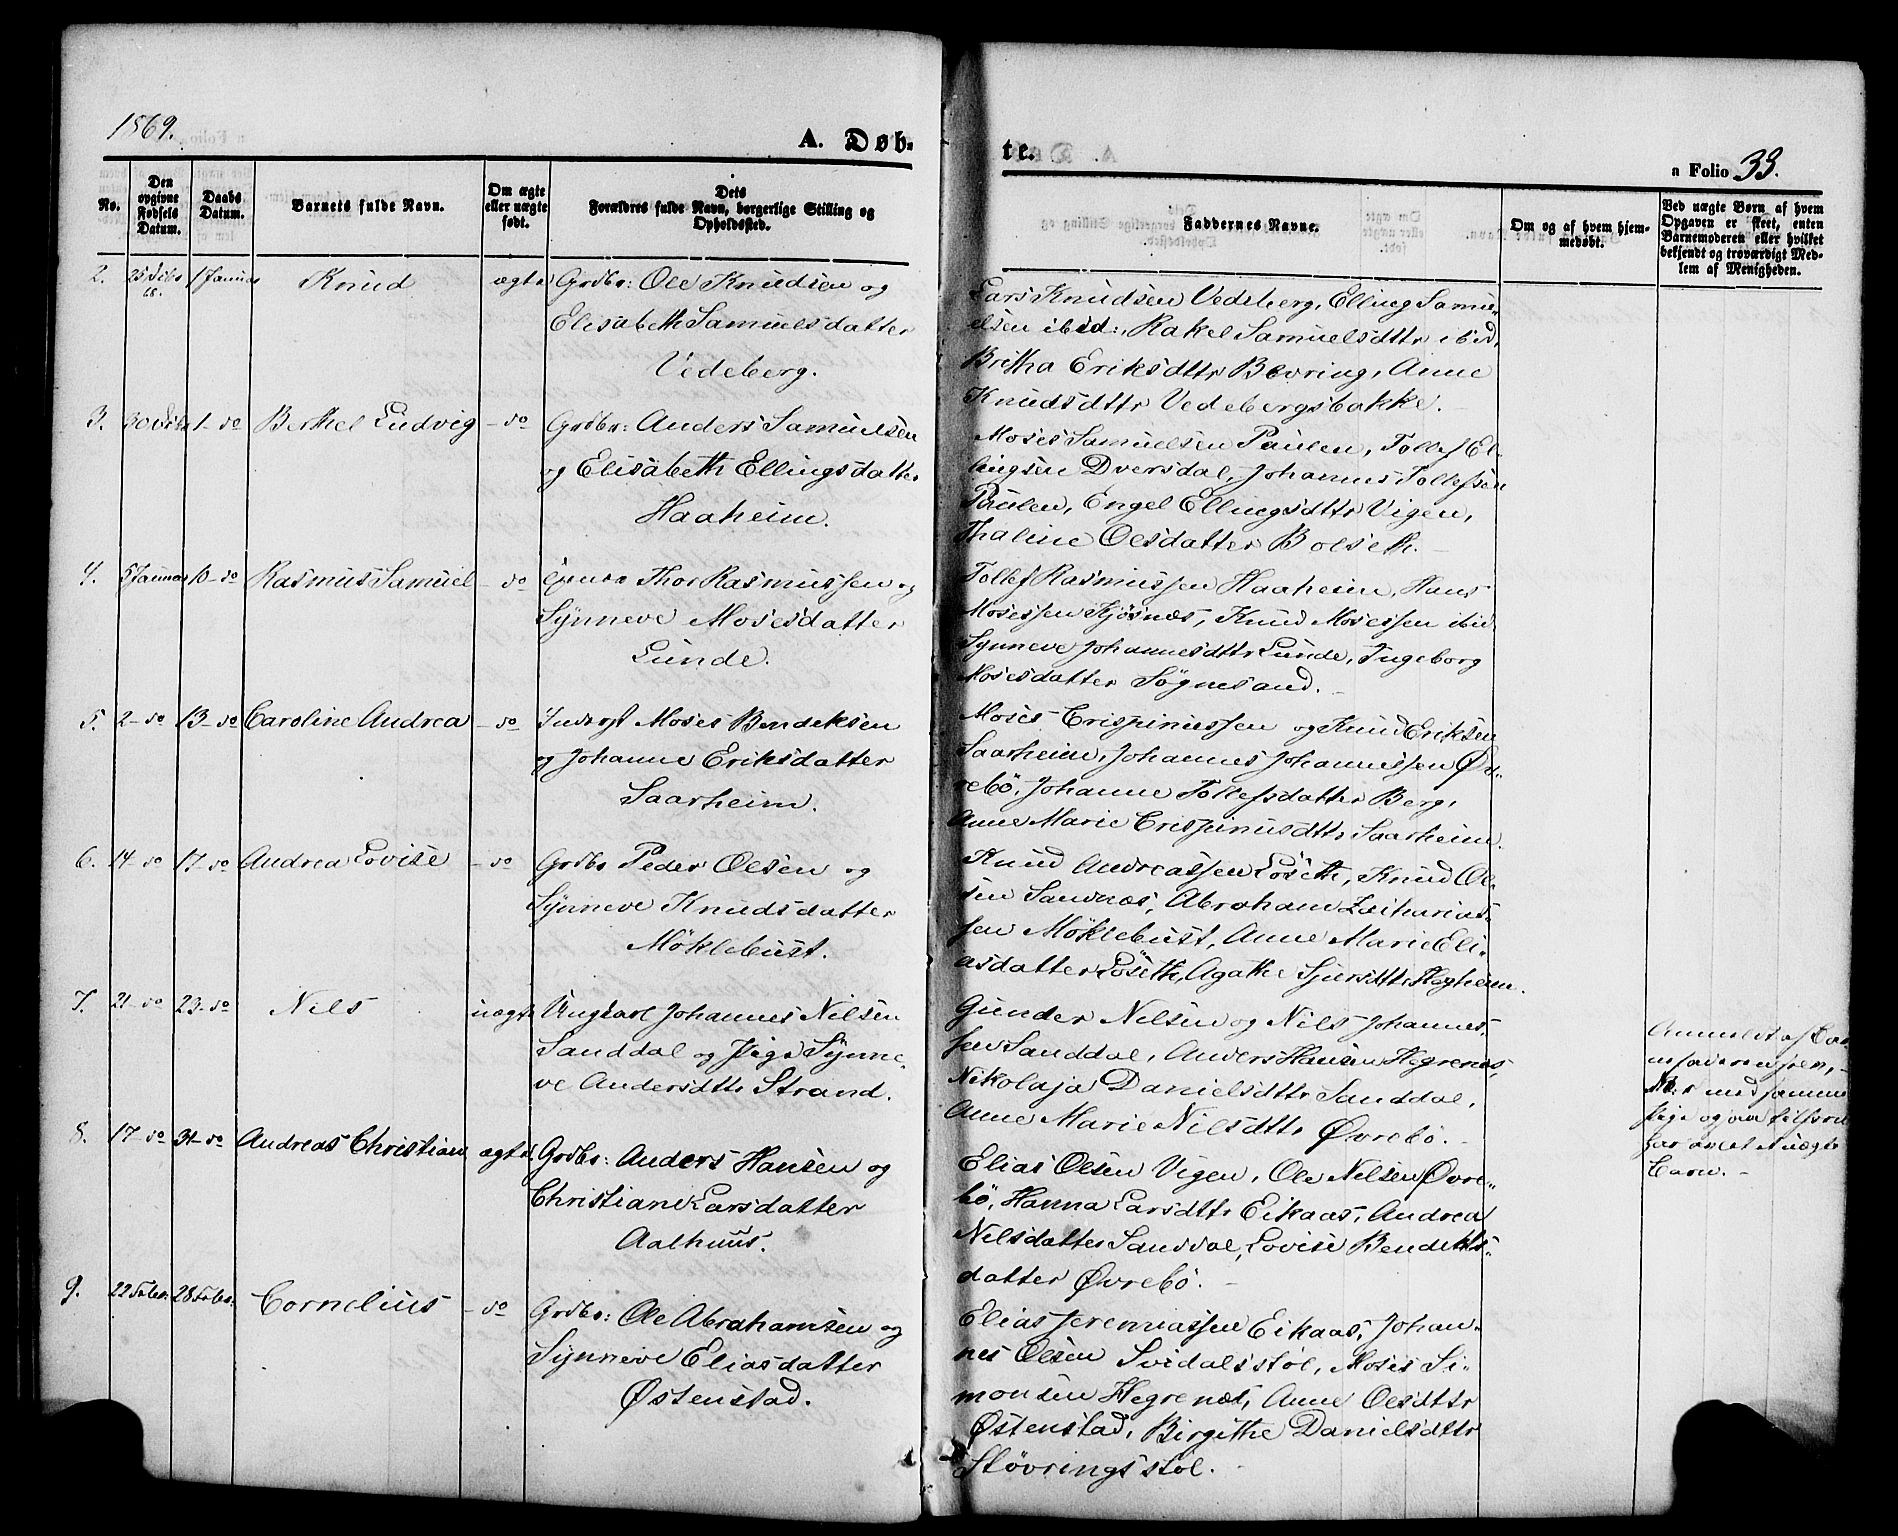 1869.
A. Døb-
te.
a Folio 33.
No.
Den opgivne Fødsels Datum.
Daabs Datum.
Barnets fulde Navn.
Om ægte eller uægte født.
Dets Forældres fulde Navn, borgerlige Stilling og Opholdssted.
Faddernes Navne.
Om og af hvem hjemmedøbt.
Ved uægte Børn af hvem
Opgaven er skeet, enten
Barnemoderen eller hvilket
bekjendt og troværdigt Med-
lem af Menigheden.
2.
Knud
ægte
Grdbr: Ole Knudsen og
Elisabeth Samuelsdatter
Vedeberg.
Lars Knudsen Vedeberg, Elling Samu-
elsen ibid:, Rakel Samuelsdttr ibid,
Britha Eriksdttr Bovring, Anne
Knudsdttr Vedebergsbakke.
3.
1 do
Berthel Ludvig
- do
Grdbr: Anders Samuelsen
og Elisabeth Ellingsdatter
Haaheim.
Moses Samuelsen Paulen, Tollef El-
lingsen Dvergsdal, Johannes Tollefsen
Paulen, Engel Ellingsdttr Vigen,
Thaline Olsdatter Bolseth.
4.
5 Januar
10 - do
Rasmus Samuel
- do
Thor Rasmussen og
Synneve Mosesdatter
Lunde.
Tollef Rasmussen Haaheim, Hans
Mosessen Kjøsnæs, Knud Mosessen ibid
Synneve Johannesdttr Lunde, Ingeborg
Mosesdatter Søgnesand.
5.
2 - do
13 - do
Caroline Andrea
- do
Inderst Moses Bendiksen
og Johanne Eriksdatter
Saarheim.
Moses Crispinussen og Knud Eriksen
Saarheim, Johannes Johannessen Øv-
rebö, Johanne Tollefsdatter Berg,
Anne Marie Crispinusdttr Saarheim.
6.
14 do
17 - do
Andrea Lovise
- do
Grdbr Peder Olsen og
Synneve Knudsdatter
Möklebust.
Knud Andreassen Löseth, Knud Ol-
sen Sandnæs, Abraham Zacharias-
sen Möklebust, Anne Marie Eli-
asdatter Löseth, Agathe Sjursdttr Hegheim.
7.
21 - do
23 - do
Nils
uægte
Ungkarl Johannes Nilsen
Sanddal og Pige Synne-
ve Andersdttr Strand.
Gunder Nilsen og Nils Johannes-
sen Sanddal, Anders Hansen Hegrenes,
Nikolaja Danielsdttr Sanddal,
Anne Marie Nilsdttr Øvrebö.
Anmeldt af Bar-
nefaderen
med samme
Pige og
har avlet 1 uægte
Barn.
8.
17 do
31 - do
Andreas Christian
ægte
Grdbr: Anders Hansen og
Christiane Larsdatter
Aalhuus.
Elias Olsen Vigen, Ole Nilsen Øvre-
bö, Hanna Larsdttr Eikaas, Andrea
Nilsdatter Sanddal, Lovise Bendiks-
datter Øvrebö.
9.
22 Febr:
28 Febr:
Cornelius
- do
Grdbr: Ole Abrahamsen og
Synneve Eliasdatter
Østenstad.
Elias Jeremiassen Eikaas, Johan-
nes Olsen Svidalsstöl, Moses Si-
monsen Hegrenæs, Anne Olsdttr
Østenstad, Birgithe Danielsdttr
Stövringsstöl.